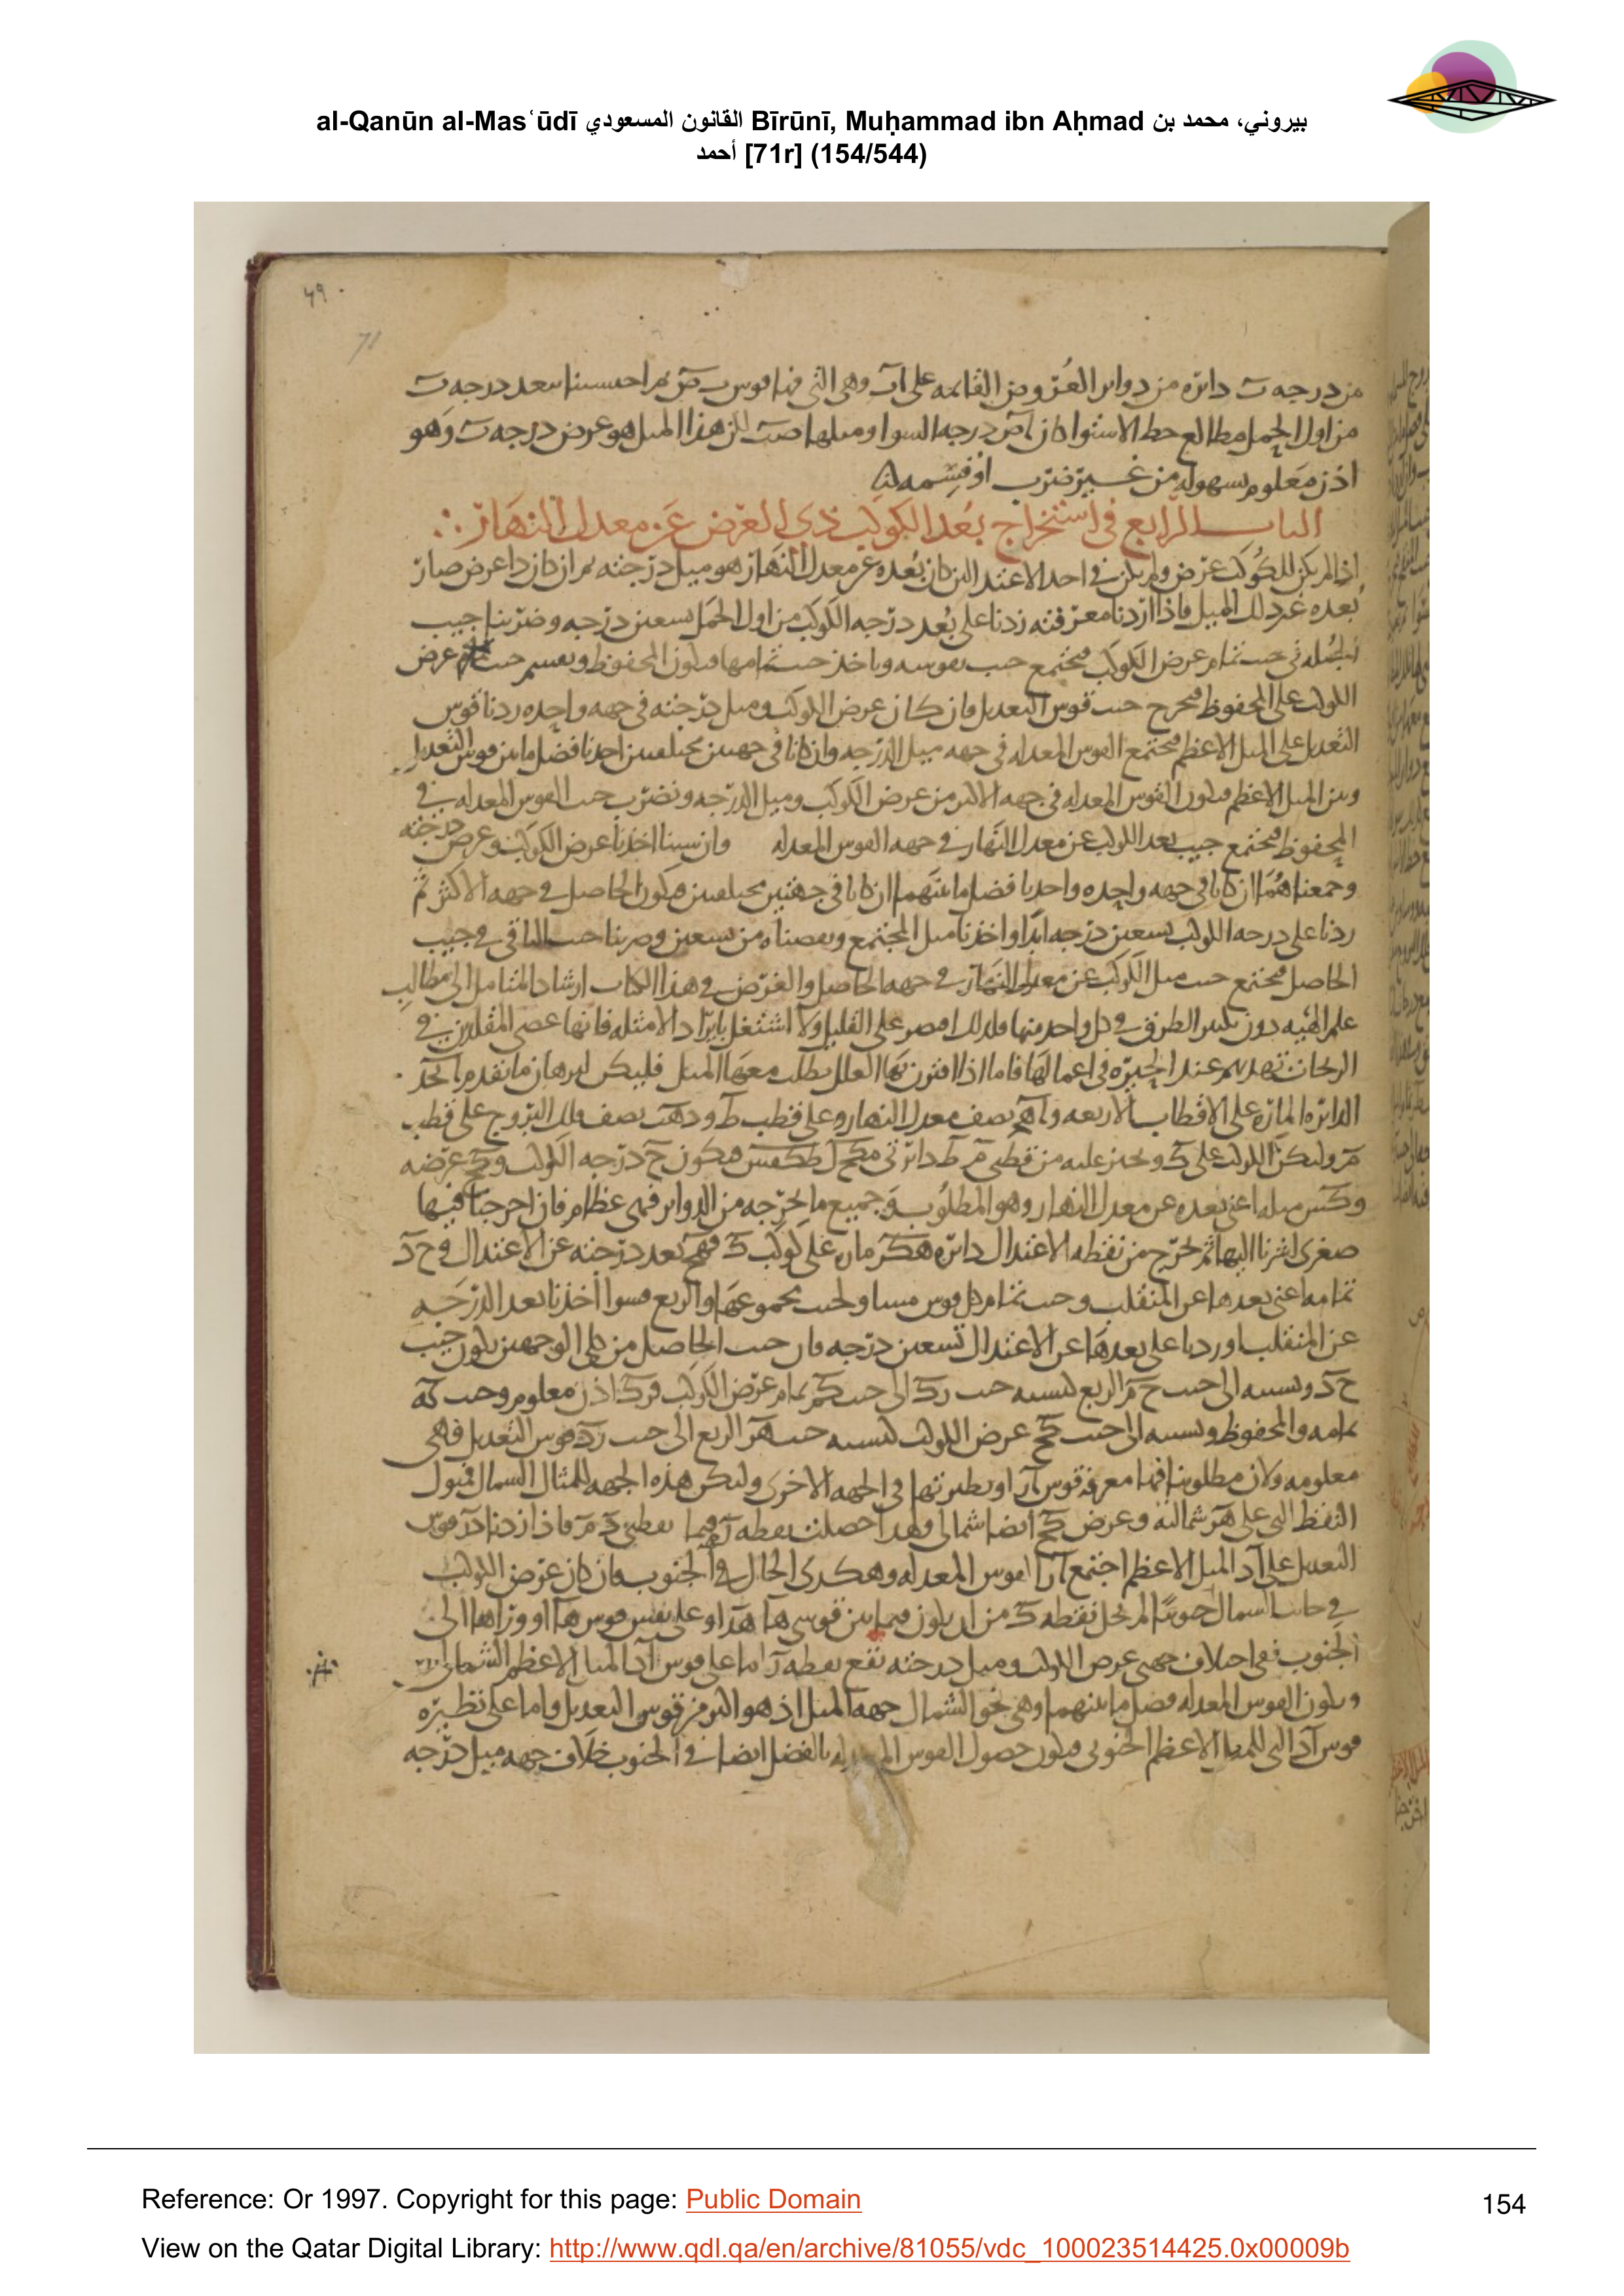 al-Qanūn al-Masʿūdī القانون المسعودي Bīrūnī, Muḥammad ibn Aḥmad بيروني، محمد بن
أحمد [71r] (154/544)
49
71
من درجه ت دائره من دوائر العروض القائمه على اب وهى التى فيها قوس
من اول الحمل مطالع خط الاستوا كان درجه السوا وميلها لان هذا الميل هو عرض درجه ت وهو
اذن معلوم بسهوله من غير ضرب او قسمه
الباب الرابع فى استخراج بعد الكوكب ذى العرض عن معدل النهار
اذا لم يكن للكوكب عرض ولم يكن فى احد الاعتدالين كان بعده عن معدل النهار هو ميل درجته فان كان ذا عرض صار
بعده غير ذلك الميل فاذا اردنا معرفته زدنا على بعد درجه الكوكب من اول الحمل تسعين درجه وضربنا جيب
الجمله فى جيب تمام عرض الكوكب فيجتمع جيب نقوسه وناخذ جيب تمامها فيكون المحفوظ ونقسم جيب عرض
الكوكب على المحفوظ فيخرج جيب قوس التعديل فان كان عرض الكوكب وميل درجته فى جهه واحده زدنا قوس
التعديل على الميل الاعظم فيجتمع القوس المعدله فى جهه ميل الدرجه وان كانا فى جهتين مختلفتين اخذنا فضل ما بين قوس التعديل
وبين الميل الاعظم فيكون القوس المعدله فى جهه الاكثر من عرض الكوكب وميل الدرجه ونضرب جيب القوس المعدله فى
المحفوظ فيجتمع جيب بعد الكوكب عن معدل النهار فى جهه القوس المعدله وان شينا اخذنا عرض الكوكب وعرض درجته
وجمعناهما ان كانا فى جهه واحده واخذنا فضل ما بينهما ان كانا فى جهتين مختلفتين فيكون الحاصل فى جهه الاكثر ثم
زدنا على درجه الكوكب تسعين درجه ابدا واخذنا ميل المجتمع ونقصناه من تسعين وضربنا جيب الباقى فى جيب
الحاصل فيجتمع جيب ميل الكوكب عن معدل النهار فى جهه الحاصل والغرض فى هذا الكتاب ارشاد المتامل الى مطالب
علم الهيه دون تكثير الطرق فى كل واحد منها فلذلك اقتصر على القليل ولا اشتغل بايراد الامثله فانها عصى المقلدين فى
عند الحيره فى اعمالها فاما اذا اقترن بها العلل بطلت معها المثل فليكن لبرهان ما تقدم
الدائره الماره على الاقطاب الاربعه و نصف معدل النهار وعلى قطب ط و نصف فلك البروج على قطب
م وليكن الكوكب على ك ونجيز عليه من قطبى م ط دائرتى فيكون ح درجه الكوكب وكح عرضه
وكس ميله اعنى بعده عن معدل النهار وهو المطلوب وجميع ما نخرجه من الدوائر فهى عظام فان اخرجنا فيها
صغرى اشرنا اليها ثم نخرج من نقطه الاعتدال دائره مار على كوكب ك بعد درجته عن الاعتدال
تمامه اعنى بعدها عن المنقلب وجيب تمام كل قوس مساو لجيب مجموعها والربع فسوا اخذنا بعد الدرجه
عن المنقلب او زدنا على بعدها عن الاعتدال تسعين درجه فان جيب الحاصل من كلى الوجهين يكون جيب
ونسبته الى جيب الربع كنسبه جيب الى جيب تمام عرض الكوكب اذن معلوم وجيب
تمامه والمحفوظ ونسبته الى جيب كح عرض الكوكب كنسبه جيب الربع الى جيب قوس التعديل فهى
معلومه ولان مطلوبنا معرفه قوس او نظيرتها فى الجهه الاخرى ولتكن هذه الجهه للمثال الشمال فتكون
النقط التى على شماليه وعرض كح ايضا شمالى
التعديل على الميل الاعظم اجتمع القوس المعدله وهكذى الحال فى الجنوب فان كان عرض الكوكب
فى جانب الشمال لم نخل نقطه ك من ان يكون فيما بين قوسى او على نفس قوس او وراها الى
الجنوب ففى اختلاف جهتى عرض الكوكب وميل درجته تقع نقطه اما على قوس الميل الاعظم الشمالى
ويكون القوس المعدله فضل ما بينهما وهى نحو الشمال جهه الميل اذ هو اكثر من قوس التعديل واما على نظيره
قوس التى للميل الاعظم الجنوبى فيكون حصول القوس المعدله بالفضل ايضا فى الجنوب خلاف جهه ميل درجه
Reference: Or 1997. Copyright for this page: Public Domain
154
View on the Qatar Digital Library: http://www.qdl.qa/en/archive/81055/vdc_100023514425.0x00009b